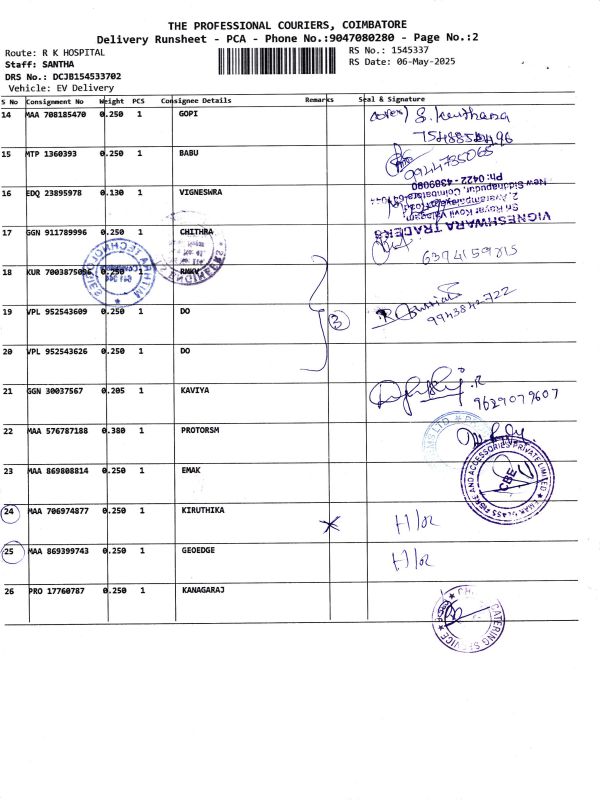 THE PROFESSIONAL COURIERS, COIMBATORE
Delivery Runsheet - PCA - Phone No.:9047080280 - Page No.:2
Route: R K HOSPITAL
RS No.: 1545337
Staff: SANTHA
RS Date: 06-May-2025
DRS No.: DCJB154533702
Vehicle: EV Delivery
S No Consignment No Weight PCS Consignee Details Remarks Seal & Signature
14 MAA 708185470 0.250 1 GOPI
15 MTP 1360393 0.250 1 BABU
9944735065
16 EDQ 23895978 0.130 1 VIGNESWRA
VIGNESHWARA TRADERS
Ph: 0422 - 4389080
17 GGN 911789996 0.250 1 CHITHRA
6374159815
18 KUR 7003875096 0.250 1
19 VPL 952543609 0.250 1 DO
3
9943842722
20 VPL 952543626 0.250 1 DO
21 GGN 30037567 0.205 1 KAVIYA
9629079607
22 MAA 576787188 0.380 1 PROTORSM
23 MAA 869808814 0.250 1 EMAK
AND ACCESSORIES PRIVATE LIMITED
CBE
24 MAA 706974877 0.250 1 KIRUTHIKA
25 MAA 869399743 0.250 1 GEOEDGE
26 PRO 17760787 0.250 1 KANAGARAJ
CATERING SERVICE